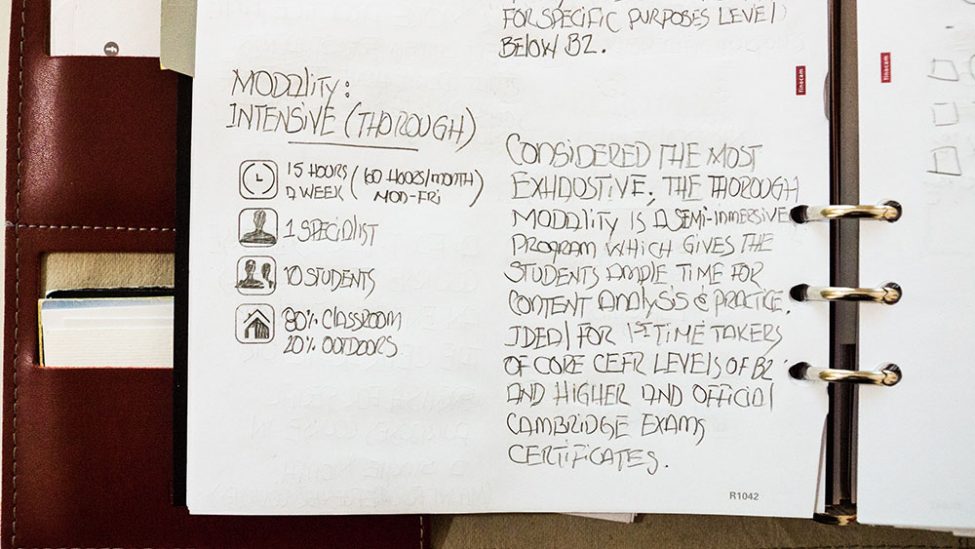 FOR SPECIFIC PURPOSES LEVEL
BELOW B2.
MODALITY:
INTENSIVE (THOROUGH)
15 HOURS
A WEEK
(60 HOURS/MONTH)
MOD-FRI
1 SPECIALIST
10 STUDENTS
80% CLASSROOM
20% OUTDOORS
CONSIDERED THE MOST
EXHAUSTIVE, THE THOROUGH
MODALITY IS A SEMI-IMMERSIVE
PROGRAM WHICH GIVES THE
STUDENTS AMPLE TIME FOR
CONTENT ANALYSIS & PRACTICE.
IDEAL FOR 1ST TIME TAKERS
OF CORE CEFR LEVELS OF B2
AND HIGHER AND OFFICIAL
CAMBRIDGE EXAMS
CERTIFICATES.
R1042
finocam
finocam